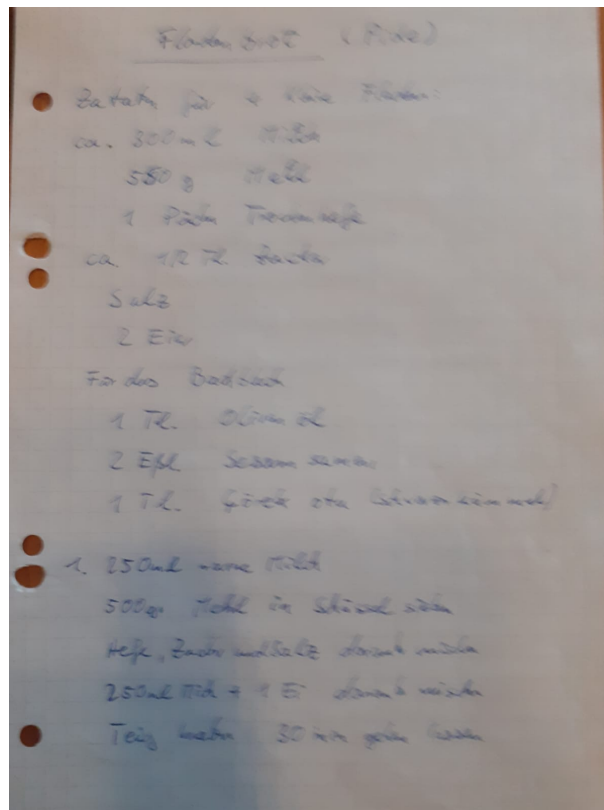 Fladenbrot (Pide)
Zutaten für 4 kleine Fladen:
ca. 300ml Milch
550 g Mehl
1 Päckn Trockenhefe
ca. 1/2 Tl. Zucker
Salz
2 Eier
Für das Backblech
1 Tl. Olivenöl
2 Eßl. Sesamsamen
1 Tl. (Schwarzkümmel)
1. 250ml warme Milch
500gr Mehl in Schüssel sieben
Hefe, Zucker und Salz darunter mischen
250ml Milch + 1 Ei darunter mischen
Teig kneten 30 min gehen lassen